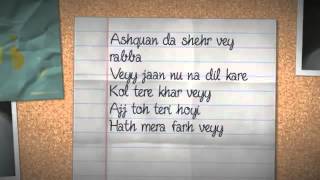 Ashquan da shehr vey
rabba
Veyy jaan nu na dil kare
Kol tere khar veyy
Ajj toh teri hoyi
Hath mera farh veyy